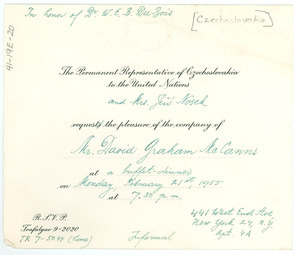 In honor of Dr W. E. B. Du Bois
[Czechoslovakia]
41-19E-20
The Permanent Representative of Czechoslovakia
to the United Nations
and Mrs. Jiří Nosek
requests the pleasure of the company of
Mr. David Graham McCanns
at a buffet-dinner
on Monday, February 21st, 1955
at 7.30 p.m.
R.S.V.P.
Trafalgar 9-2020
TR 7-5044
Informal
441 West End Ave,
New York 24, N.Y.
Apt. 4A